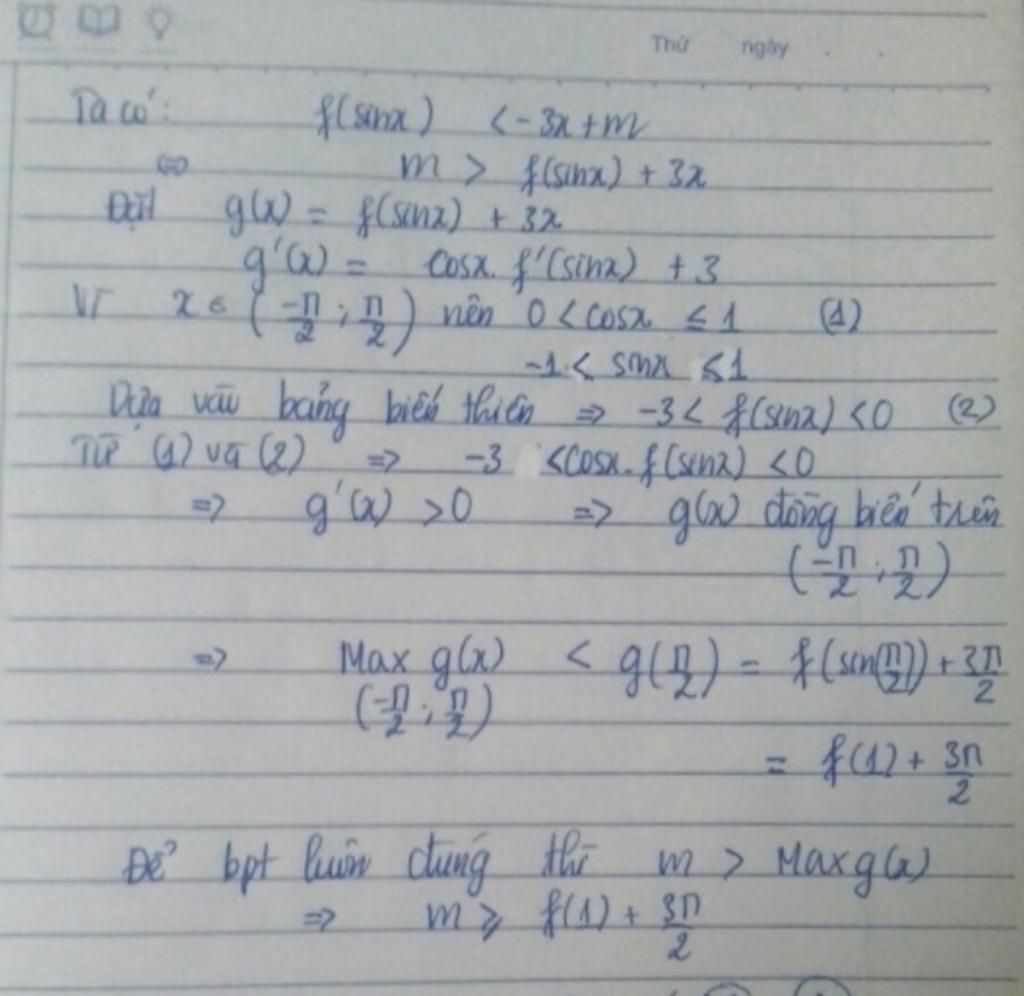 Thứ ngày . .
Ta có: f(sinx) < -3x+m
⇔ m > f(sinx) + 3x
Đặt g(x) = f(sinx) + 3x
g'(x) = cosx. f'(sinx) + 3
Vì x ∈ (-π/2 ; π/2) nên 0 < cosx ≤ 1 (1)
-1 < sinx ≤ 1
Dựa vào bảng biến thiên ⇒ -3 < f(sinx) < 0 (2)
Từ (1) và (2) ⇒ -3 < cosx. f(sinx) < 0
⇒ g'(x) > 0 ⇒ g(x) đồng biến trên
(-π/2 ; π/2)
⇒ Max g(x) < g(π/2) = f(sin(π/2)) + 3π/2
(-π/2 ; π/2)
= f(1) + 3π/2
Để bpt luôn đúng thì m > Max g(x)
⇒ m ≥ f(1) + 3π/2